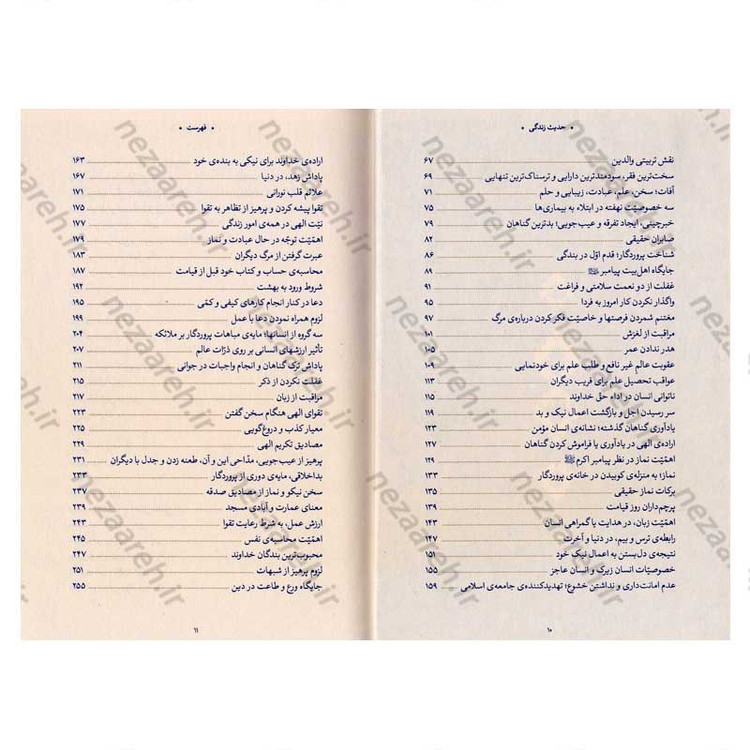 • حدیث زندگی •
نقش تربیتی والدین ۶۷
سخت‌ترین فقر، سودمندترین دارایی و ترسناک‌ترین تنهایی ۶۹
آفات؛ سخن، علم، عبادت، زیبایی و حلم ۷۱
سه خصوصیّت نهفته در ابتلاء به بیماری‌ها ۷۵
خبرچینی، ایجاد تفرقه و عیب‌جویی؛ بدترین گناهان ۷۹
صابران حقیقی ۸۲
شناخت پروردگار؛ قدم اوّل در بندگی ۸۶
جایگاه اهل‌بیت پیامبر ﷺ ۸۹
غفلت از دو نعمت سلامتی و فراغت ۹۱
واگذار نکردن کار امروز به فردا ۹۵
مغتنم شمردن فرصتها و خاصیّت فکر کردن درباره‌ی مرگ ۹۷
مراقبت از لغزش ۱۰۱
هدر ندادن عمر ۱۰۵
عقوبت عالمِ غیر نافع و طلب علم برای خودنمایی ۱۰۹
عواقب تحصیل علم برای فریب دیگران ۱۱۳
ناتوانی انسان در اداء حقّ خداوند ۱۱۵
سر رسیدن اجل و بازگشت اعمال نیک و بد ۱۱۹
یادآوری گناهان گذشته؛ نشانه‌ی انسان مؤمن ۱۲۳
اراده‌ی الهی در یادآوری یا فراموش کردن گناهان ۱۲۷
اهمّیّت نماز در نظر پیامبر اکرم ﷺ ۱۲۹
نماز؛ به منزله‌ی کوبیدن در خانه‌ی پروردگار ۱۳۳
برکات نماز حقیقی ۱۳۵
پرچم‌داران روز قیامت ۱۳۹
اهمّیّت زبان، در هدایت یا گمراهی انسان ۱۴۳
رابطه‌ی ترس و بیم، در دنیا و آخرت ۱۴۷
نتیجه‌ی دل‌بستن به اعمال نیک خود ۱۵۱
خصوصیّات انسان زیرک و انسان عاجز ۱۵۵
عدم امانت‌داری و نداشتن خشوع؛ تهدیدکننده‌ی جامعه‌ی اسلامی ۱۵۹
۱۰
• فهرست •
اراده‌ی خداوند برای نیکی به بنده‌ی خود ۱۶۳
پاداش زهد، در دنیا ۱۶۷
علائم قلب نورانی ۱۷۱
تقوا پیشه کردن و پرهیز از تظاهر به تقوا ۱۷۵
نیّت الهی در همه‌ی امور زندگی ۱۷۷
اهمّیّت توجّه در حال عبادت و نماز ۱۷۹
عبرت گرفتن از مرگ دیگران ۱۸۳
محاسبه‌ی حساب و کتاب خود قبل از قیامت ۱۸۷
شروط ورود به بهشت ۱۹۲
دعا در کنار انجام کارهای کیفی و کمّی ۱۹۵
لزوم همراه نمودن دعا با عمل ۱۹۹
سه گروه از انسانها؛ مایه‌ی مباهات پروردگار بر ملائکه ۲۰۴
تأثیر ارزشهای انسانی بر روی ذرّات عالم ۲۰۷
پاداش ترک گناهان و انجام واجبات در جوانی ۲۱۱
غفلت نکردن از ذکر ۲۱۵
مراقبت از زبان ۲۱۷
تقوای الهی هنگام سخن گفتن ۲۲۳
معیار کذب و دروغ‌گویی ۲۲۵
مصادیق تکریم الهی ۲۲۹
پرهیز از عیب‌جویی، مدّاحی این و آن، طعنه زدن و جدل با دیگران ۲۳۱
بداخلاقی، مایه‌ی دوری از پروردگار ۲۳۳
سخن نیکو و نماز از مصادیق صدقه ۲۳۷
معنای عمارت و آبادی مسجد ۲۳۹
ارزش عمل، به شرط رعایت تقوا ۲۴۳
اهمّیّت محاسبه‌ی نفس ۲۴۵
محبوب‌ترین بندگان خداوند ۲۴۷
لزوم پرهیز از شبهات ۲۵۱
جایگاه ورع و طاعت در دین ۲۵۵
۱۱
nezaareh.ir
nezaareh.ir
nezaareh.ir
nezaareh.ir
nezaareh.ir
nezaareh.ir
nezaareh.ir
nezaareh.ir
nezaareh.ir
nezaareh.ir